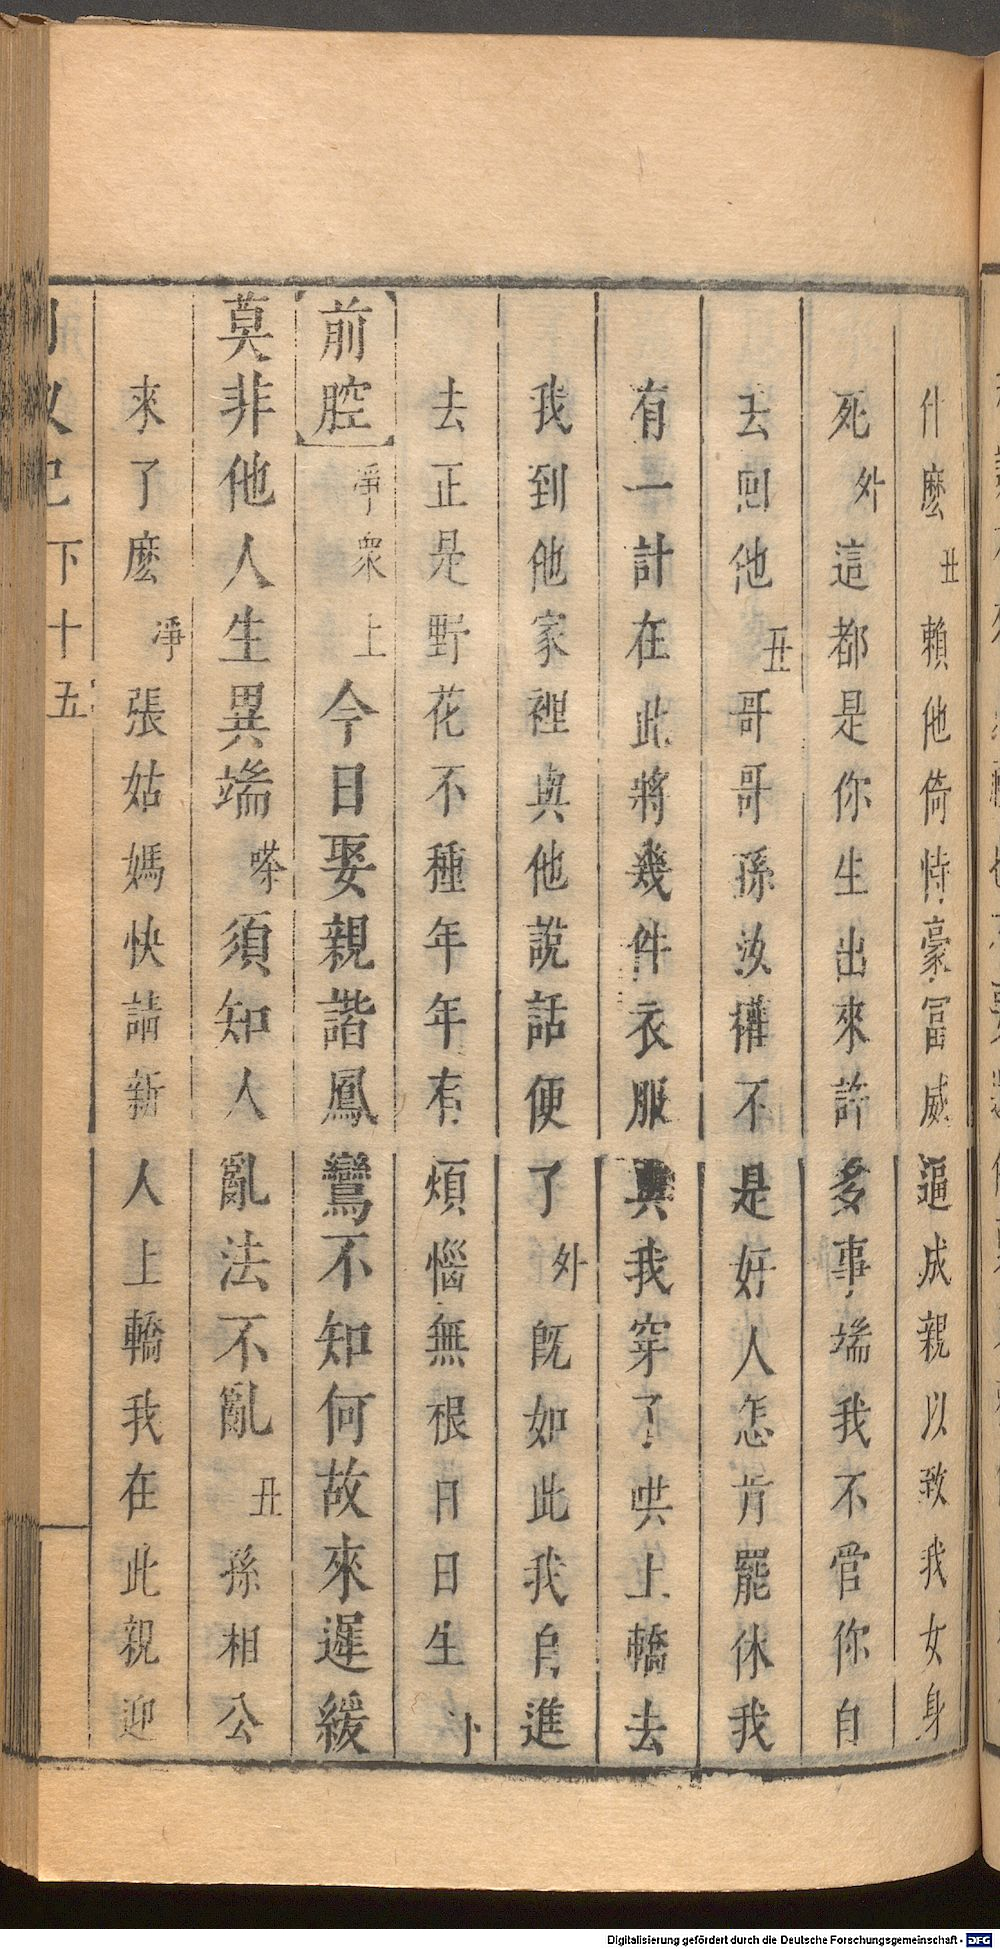 什麼丑賴他倚恃豪冨威逼成親以致我女身
死外這都是你生出來許多事端我不管你自
去囘他丑哥哥孫汝權不是好人怎肯罷休我
有一計在此將幾件衣服與我穿了哄上轎去
我到他家裡與他說話便了外旣如此我自進
去正是野花不種年年有煩惱無根日日生下
前腔淨衆上今日娶親諧鳳鸞不知何故來遲緩
莫非他人生異端嗏須知人亂法不亂丑孫相公
來了麽淨張姑媽快請新人上轎我在此親迎
下十五
Digitalisierung gefördert durch die Deutsche Forschungsgemeinschaft - DFG